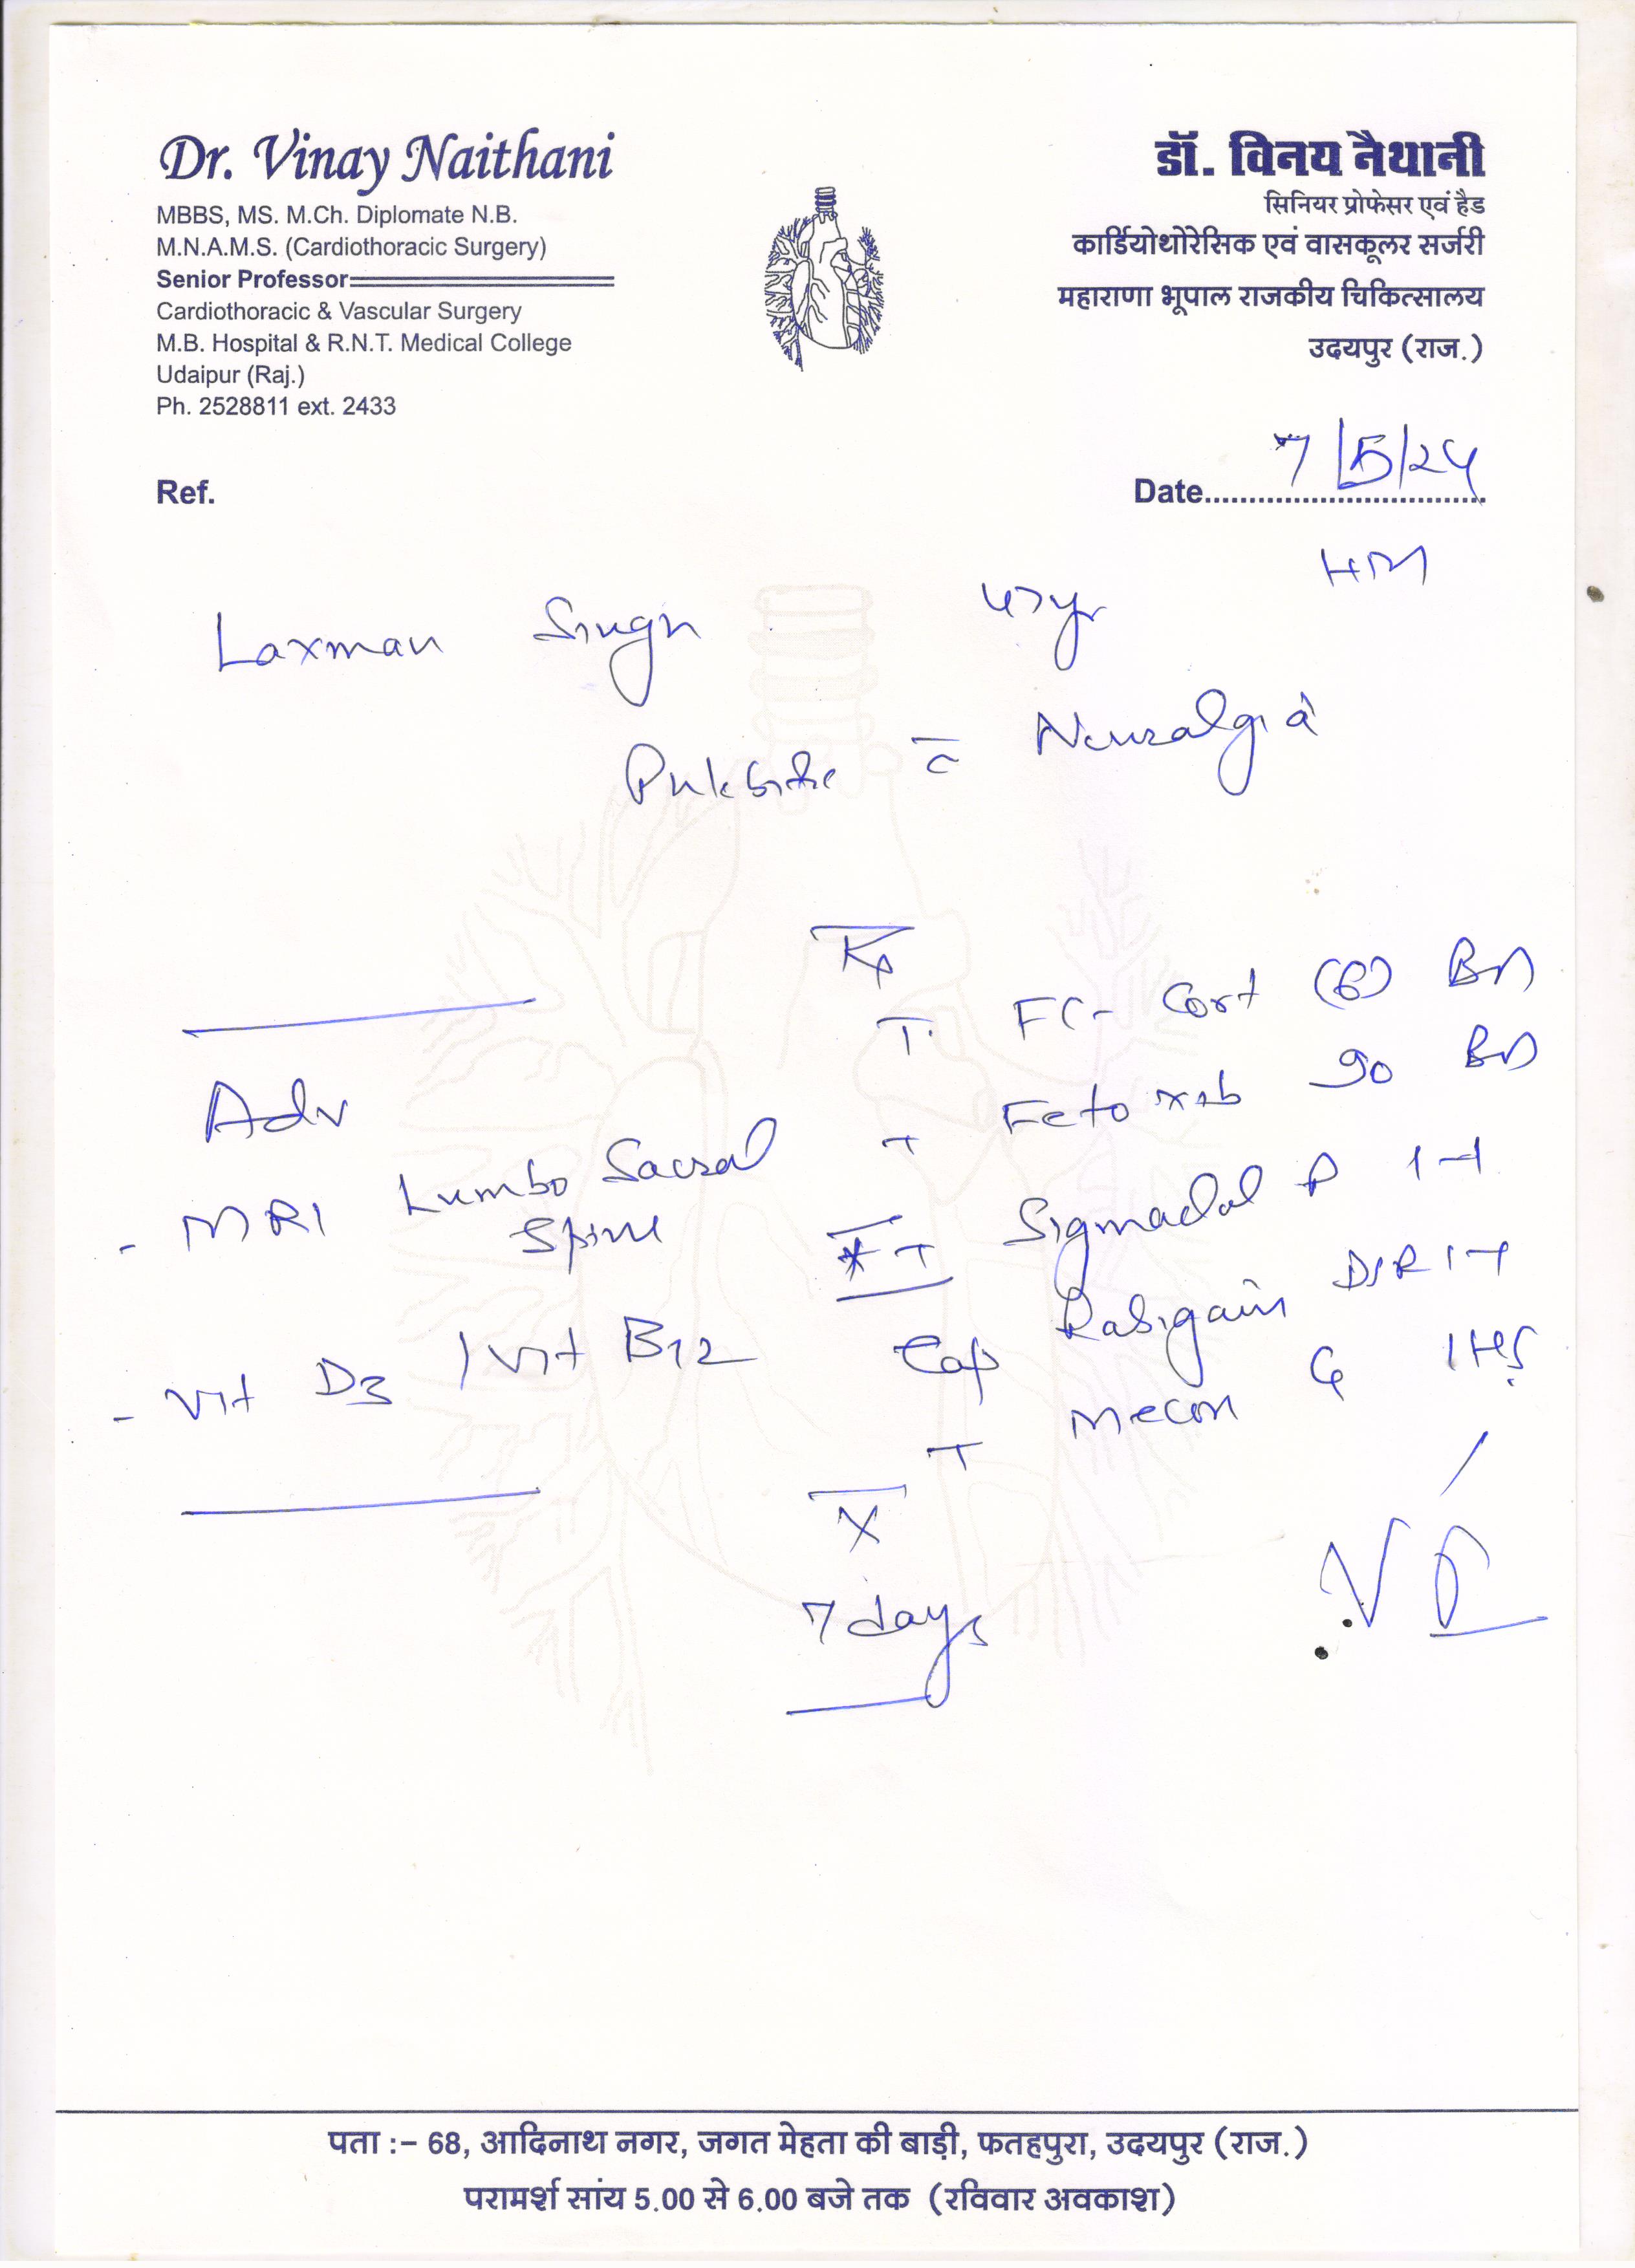 Dr. Vinay Naithani
MBBS, MS. M.Ch. Diplomate N.B.
M.N.A.M.S. (Cardiothoracic Surgery)
Senior Professor
Cardiothoracic & Vascular Surgery
M.B. Hospital & R.N.T. Medical College
Udaipur (Raj.)
Ph. 2528811 ext. 2433
डॉ. विनय नैथानी
सिनियर प्रोफेसर एवं हैड
कार्डियोथोरेसिक एवं वासकूलर सर्जरी
महाराणा भूपाल राजकीय चिकित्सालय
उदयपुर (राज.)
Ref.
Date 7/5/24
Laxman Singh 47yr HM
c Neuralgia
Rx
T. Cort (6) BD
T 90 BD
T P 1-1
Cap DSR 1-1
T 1 HS
X
7 days
Adv
- MRI Lumbo Sacral
Spine
- Vit D3 / Vit B12
पता :– 68, आदिनाथ नगर, जगत मेहता की बाड़ी, फतहपुरा, उदयपुर (राज.)
परामर्श सांय 5.00 से 6.00 बजे तक (रविवार अवकाश)